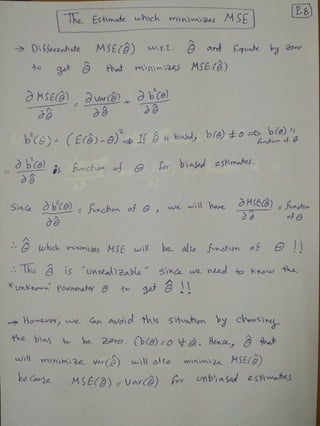 P.8
The Estimate which minimizes MSE
→ Differentiate MSE(θ̂) w.r.t. θ̂ and Equate by zero
to get θ̂ that minimizes MSE(θ̂)
∂MSE(θ̂)/∂θ̂ = ∂var(θ̂)/∂θ̂ + ∂b²(θ)/∂θ̂
b²(θ) = (E(θ̂) - θ)² ⇒ If θ̂ is biased, b(θ) ≠ 0 ⇒ b(θ) is
function of θ
∴ ∂b²(θ)/∂θ̂ is function of θ for biased estimates.
Since ∂b²(θ)/∂θ̂ = function of θ, we will have ∂MSE(θ̂)/∂θ̂ = function
of θ
∴ θ̂ which minimizes MSE will be also function of θ !!
∴ This θ̂ is "unrealizable" since we need to know the
"unknown" parameter θ to get θ̂ !!
→ However, we can avoid this situation by choosing
the bias to be zero. (b(θ)=0 ∀ θ). Hence, θ̂ that
will minimize var(θ̂) will also minimize MSE(θ̂)
because MSE(θ̂) = var(θ̂) for unbiased estimates